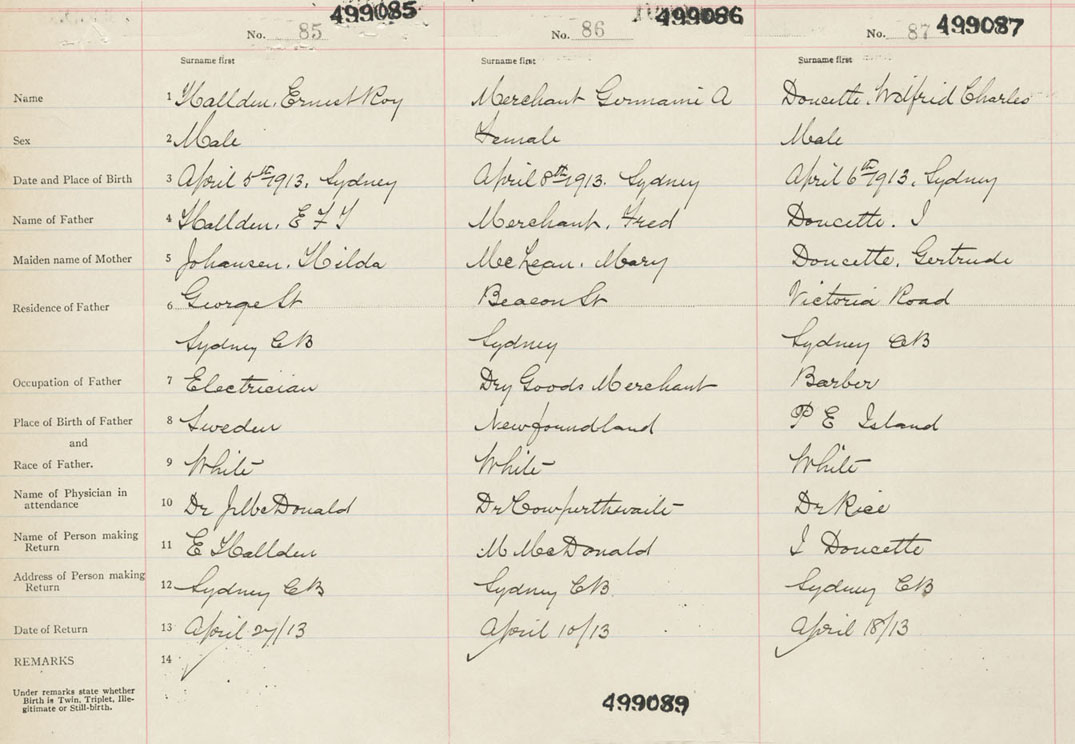 499085 499086 499087
No. 85 No. 86 No. 87
Surname first Surname first Surname first
Name 1 Hallden, Ernest Roy Merchant Germaini A Doucette, Wilfrid Charles
Sex 2 Male Female Male
Date and Place of Birth 3 April 5th 1913, Sydney April 8th 1913. Sydney April 6th 1913, Sydney
Name of Father 4 Hallden, E F T Merchant, Fred Doucette. I
Maiden name of Mother 5 Johansen, Hilda McLean, Mary Doucette, Gertrude
Residence of Father 6 George St Beacon St Victoria Road
Sydney CB Sydney Sydney CB
Occupation of Father 7 Electrician Dry Goods Merchant Barber
Place of Birth of Father 8 Sweden Newfoundland P E Island
and
Race of Father. 9 White White White
Name of Physician in
attendance 10 Dr McDonald Dr Cowperthwaite Dr Rice
Name of Person making
Return 11 E Hallden M McDonald I Doucette
Address of Person making
Return 12 Sydney CB Sydney CB Sydney CB
Date of Return 13 April /13 April 10/13 April 18/13
REMARKS 14
Under remarks state whether
Birth is Twin, Triplet, Ille-
gitimate or Still-birth.
499089